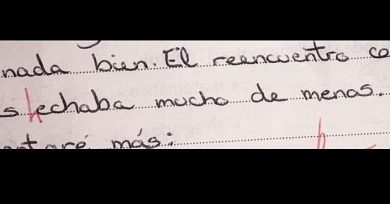 nada bien. El reencuentro co
s echaba mucho de menos.
ntaré más: